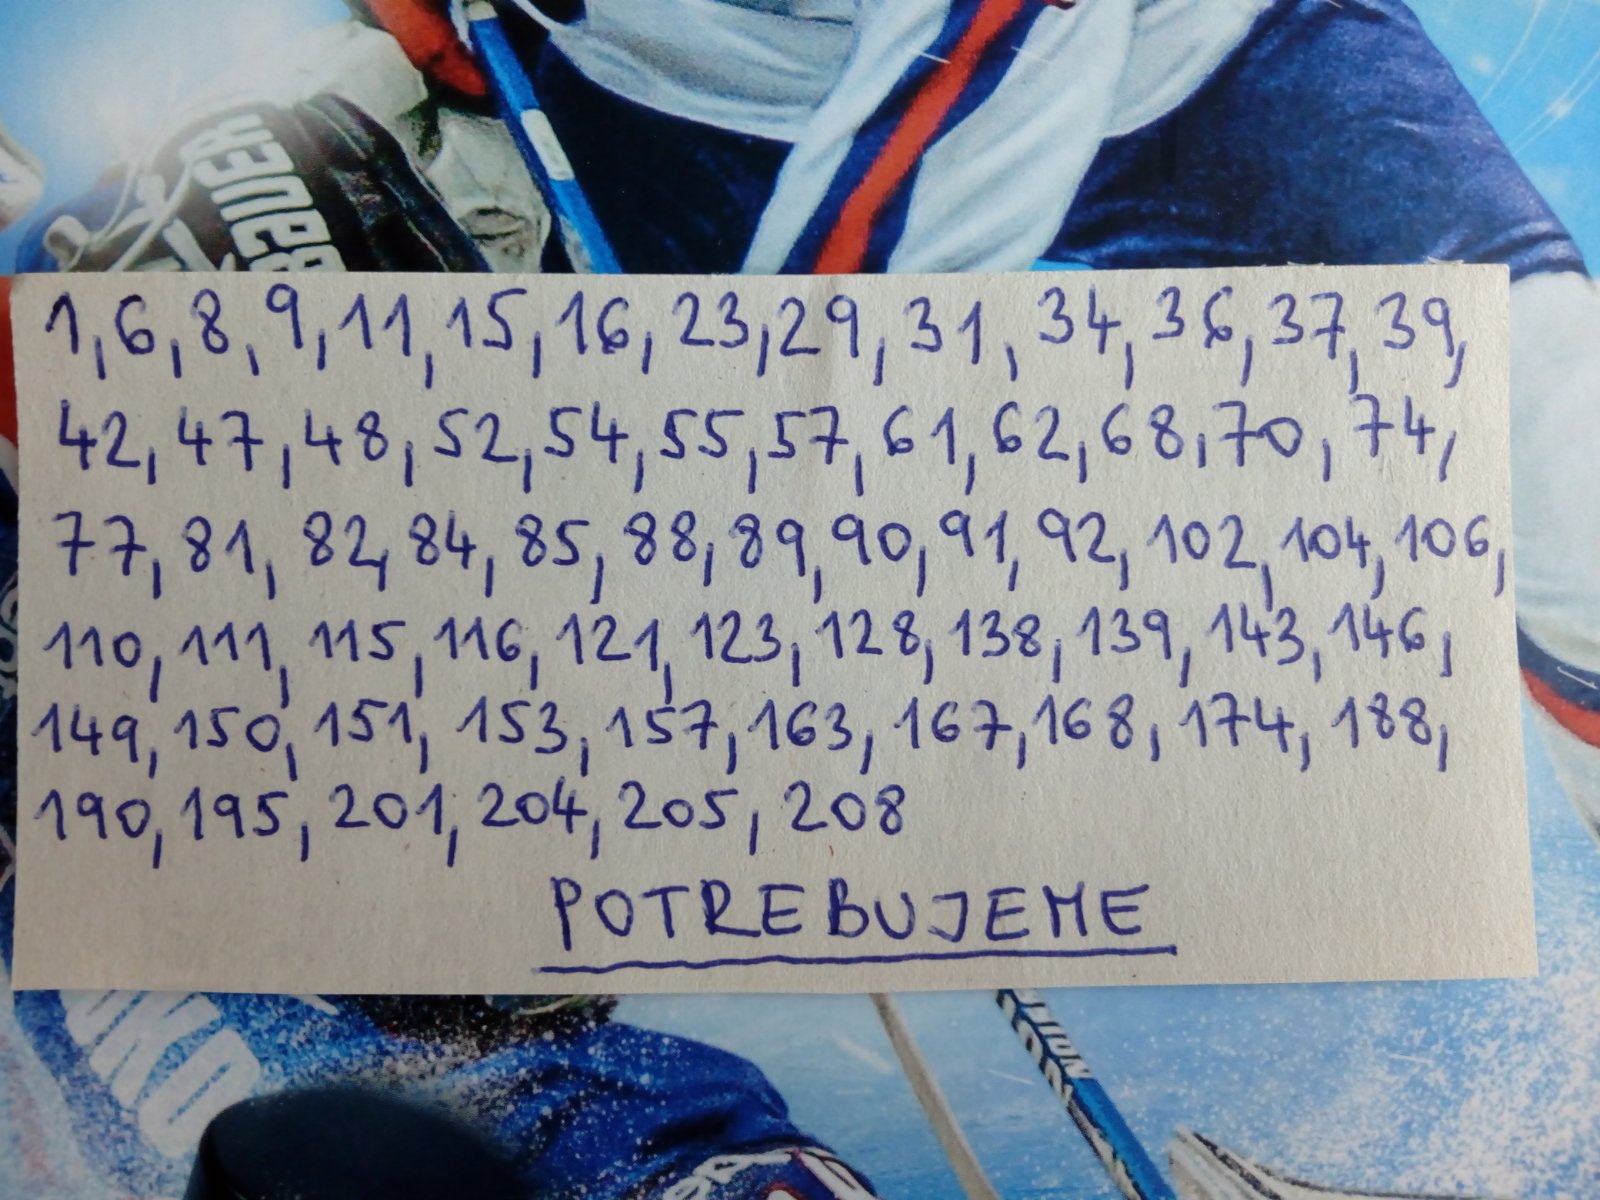 BAUER
1, 6, 8, 9, 11, 15, 16, 23, 29, 31, 34, 36, 37, 39,
42, 47, 48, 52, 54, 55, 57, 61, 62, 68, 70, 74,
77, 81, 82, 84, 85, 88, 89, 90, 91, 92, 102, 104, 106,
110, 111, 115, 116, 121, 123, 128, 138, 139, 143, 146,
149, 150, 151, 153, 157, 163, 167, 168, 174, 188,
190, 195, 201, 204, 205, 208
POTREBUJEME